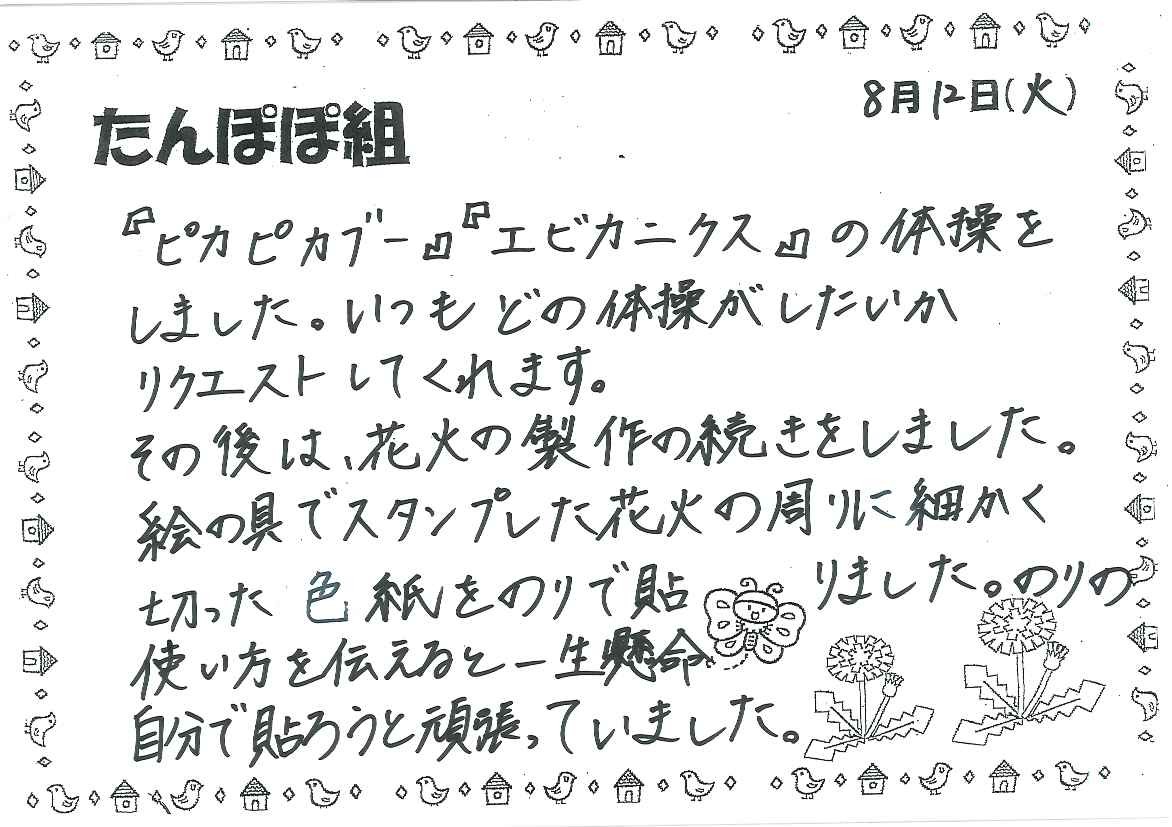 8月12日(火)
たんぽぽ組
『ピカピカブー』『エビカニクス』の体操を
しました。いつもどの体操がしたいか
リクエストしてくれます。
その後は、花火の製作の続きをしました。
絵の具でスタンプした花火の周りに細かく
切った色紙をのりで貼りました。のりの
使い方を伝えると一生懸命
自分で貼ろうと頑張っていました。